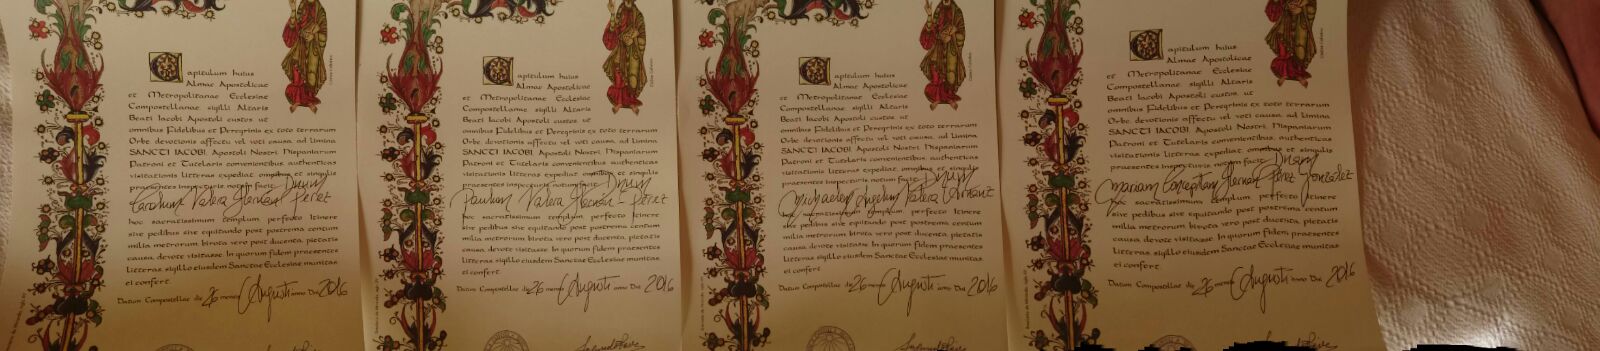 Capitulum huius
Almae Apostolicae
et Metropolitanae Ecclesiae
Compostellanae sigilli Altaris
Beati Iacobi Apostoli custos, ut
omnibus Fidelibus et Peregrinis ex toto terrarum
Orbe, devotionis affectu vel voti causa, ad limina
SANCTI IACOBI, Apostoli Nostri, Hispaniarum
Patroni et Tutelaris convenientibus, authenticas
visitationis litteras expediat, omnibus et singulis
praesentes inspecturis, notum facit: Dnum
Carolum Valera Hernán-Pérez
hoc sacratissimum templum, perfecto Itinere
sive pedibus sive equitando post postrema centum
milia metrorum, birota vero post ducenta, pietatis
causa, devote visitasse. In quorum fidem praesentes
litteras, sigillo eiusdem Sanctae Ecclesiae munitas
ei confert.
Datum Compostellae die 26 mensis Augusti anno Dni 2016
Capitulum huius
Almae Apostolicae
et Metropolitanae Ecclesiae
Compostellanae sigilli Altaris
Beati Iacobi Apostoli custos, ut
omnibus Fidelibus et Peregrinis ex toto terrarum
Orbe, devotionis affectu vel voti causa, ad limina
SANCTI IACOBI, Apostoli Nostri, Hispaniarum
Patroni et Tutelaris convenientibus, authenticas
visitationis litteras expediat, omnibus et singulis
praesentes inspecturis, notum facit: Dnum
Paulum Valera Hernán-Pérez
hoc sacratissimum templum, perfecto Itinere
sive pedibus sive equitando post postrema centum
milia metrorum, birota vero post ducenta, pietatis
causa, devote visitasse. In quorum fidem praesentes
litteras, sigillo eiusdem Sanctae Ecclesiae munitas
ei confert.
Datum Compostellae die 26 mensis Augusti anno Dni 2016
Capitulum huius
Almae Apostolicae
et Metropolitanae Ecclesiae
Compostellanae sigilli Altaris
Beati Iacobi Apostoli custos, ut
omnibus Fidelibus et Peregrinis ex toto terrarum
Orbe, devotionis affectu vel voti causa, ad limina
SANCTI IACOBI, Apostoli Nostri, Hispaniarum
Patroni et Tutelaris convenientibus, authenticas
visitationis litteras expediat, omnibus et singulis
praesentes inspecturis, notum facit: Dnum
Michaelem Angelum Valera
hoc sacratissimum templum, perfecto Itinere
sive pedibus sive equitando post postrema centum
milia metrorum, birota vero post ducenta, pietatis
causa, devote visitasse. In quorum fidem praesentes
litteras, sigillo eiusdem Sanctae Ecclesiae munitas
ei confert.
Datum Compostellae die 26 mensis Augusti anno Dni 2016
Capitulum huius
Almae Apostolicae
et Metropolitanae Ecclesiae
Compostellanae sigilli Altaris
Beati Iacobi Apostoli custos, ut
omnibus Fidelibus et Peregrinis ex toto terrarum
Orbe, devotionis affectu vel voti causa, ad limina
SANCTI IACOBI, Apostoli Nostri, Hispaniarum
Patroni et Tutelaris convenientibus, authenticas
visitationis litteras expediat, omnibus et singulis
praesentes inspecturis, notum facit: Dnam
Mariam Conceptam Hernán-Pérez González
hoc sacratissimum templum, perfecto Itinere
sive pedibus sive equitando post postrema centum
milia metrorum, birota vero post ducenta, pietatis
causa, devote visitasse. In quorum fidem praesentes
litteras, sigillo eiusdem Sanctae Ecclesiae munitas
ei confert.
Datum Compostellae die 26 mensis Augusti anno Dni 2016